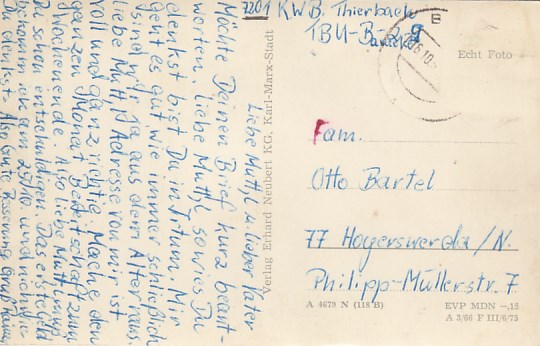 7201 K.W.B. Thierbach
TBU-B-2-9
Baracke
B
6.10.
Echt Foto
Fam.
Otto Bartel
77 Hoyerswerda/N.
Philipp-Müllerstr. 7
A 4679 N (118 B)
EVP MDN -,15
A 3/66 F III/6/73
Verlag Erhard Neubert KG. Karl-Marx-Stadt
Liebe Mutti u. lieber Vater
Möchte Deinen Brief kurz beant-
worten. Liebe Mutti, so wies Du
denkst bist Du im Irrtum. Mir
geht es gut wie immer schließlich
sind wir ja aus dem Alter raus.
Liebe Mutti Adresse von mir ist
voll und ganz richtig. Mache den
ganzen Monat Bereitschaft zum
Wochenende. Also liebe Mutti muß
Du schon entschuldigen. Das erste Geld
bekomm ich am 25/10 und nicht wie
Du denkst. Also Gute Besserung Gruß